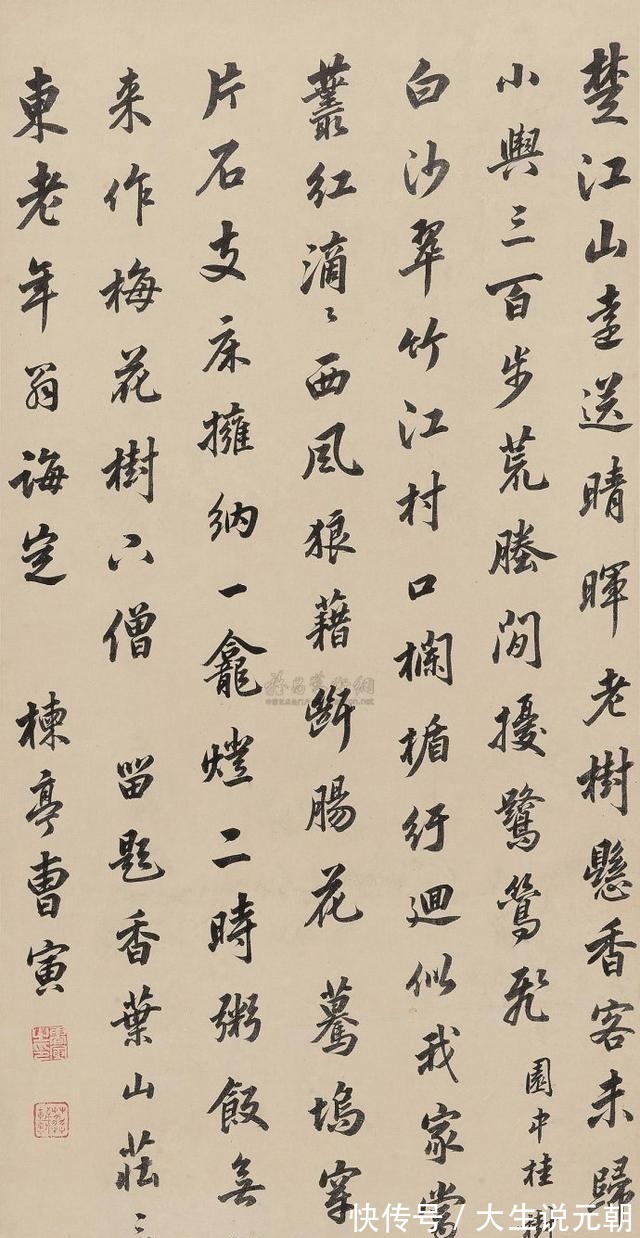 楚江山霽送晴暉老樹懸香客未歸
小輿三百步荒塍閒擾鷺鶿飛 園中桂樹
白沙翠竹江村口欄楯紆迴似我家
叢紅滴〻西風狼藉斷腸花 驀塢穿
片石支床擁衲一龕燈二時粥飯無
来作梅花樹下僧 留題香葉山莊二
東老年翁誨定 楝亭曹寅
快传号/大生说元朝